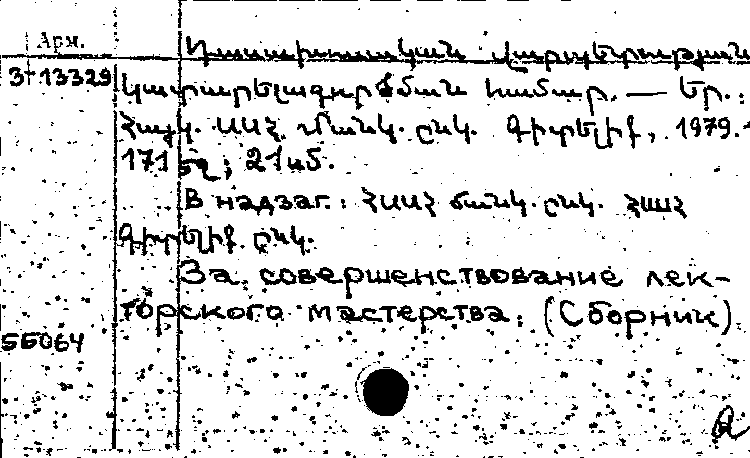 Арм.
Դասախոսական վարպետության
3-13329 կատարելագործման համար. — Եր.:
Հայկ. ՍՍՀ մանկ. ընկ. Գիտելիք, 1979.-
171 էջ; 21 սմ.
В надзаг.: ՀՍՍՀ մանկ. ընկ. ՀՍՍՀ
Գիտելիք ընկ.
За совершенствование лек-
торского мастерства. (Сборник)
55064